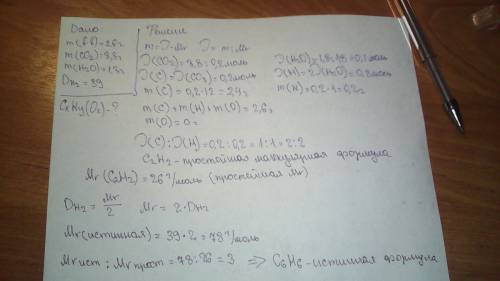 Дано:
m(в-в)=2,6г
m(CO₂)=8,8г
m(H₂O)=1,8г
DH₂ = 39
CxHy(Oz)-?
Решение
m=ν·Mr ν = m:Mr
ν(CO₂)= 8,8: =0,2моль
ν(C)=ν(CO₂)=0,2моль
m(C)=0,2·12=2,4г
ν(H₂O)=1,8:18=0,1моль
ν(H)=2·ν(H₂O)=0,2моль
m(H)=0,2·1=0,2г
m(C)+m(H)+m(O)=2,6г
m(O)=0г
ν(C):ν(H)=0,2:0,2=1:1=2:2
C₂H₂-простейшая формула
Mr(C₂H₂)=26г/моль (простейшая Mr)
DH₂ = Mr/2 Mr = 2·DH₂
Mr(истинная)=39·2=78г/моль
Mr ист : Mr прост = 78:26 = 3 ⇒ C₆H₆-истинная формула